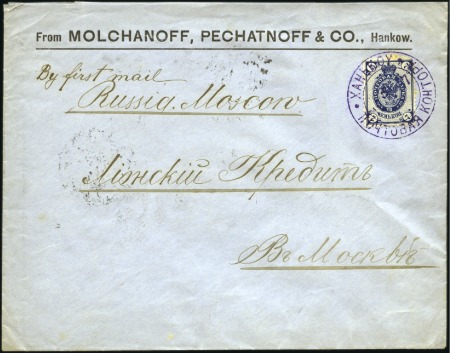 From MOLCHANOFF, PECHATNOFF & CO., Hankow.
By first mail
Russia. Moscow
ХАНЬКОУ ПОЧТОВАЯ КОНТОРА
Кредитъ
Въ Москвѣ